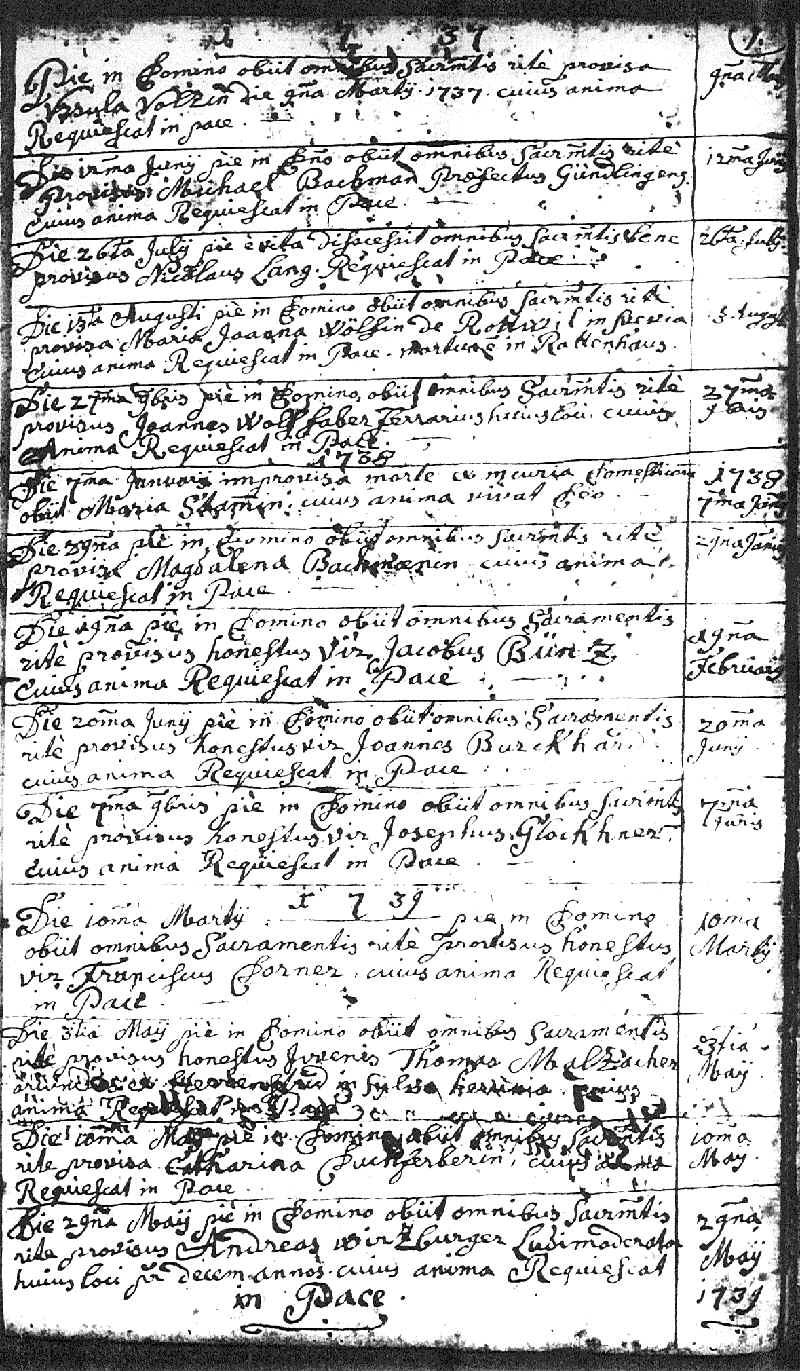 1 7 37
1.
Piè in Domino obiit omnibus Sacrm̃tis ritè provisa
Ursula Volzin die 9na Martij 1737. cuius anima
Requiescat in pace.
9na
Die 12ma Junij piè in Dño obiit omnibus Sacrm̃tis ritè
provisus Michael Bachman Præfectus Gündlingens.
cuius anima Requiescat in Pace.
12ma Junij
Die 26ta Julij piè è vita discessit omnibus Sacrm̃tis bene
provisus Nicolaus Lang. Requiescat in Pace.
26ta Julij
Augusti piè in Domino obiit omnibus Sacrm̃tis ritè
provisa Maria Joanna Wölfin de Rottwil in Suevia
cuius anima Requiescat in Pace. mortua è in Rottenhaus.
August
Die 27ma 9bris piè in Domino obiit omnibus Sacrm̃tis ritè
provisus Joannes Wolf faber Ferrarius huius loci. cuius
Anima Requiescat in Pace.
27ma
9bris
1738
Die 7ma Januarij improvisa morte ex incuria Domesticorũ
obiit Maria cuius anima vivat Deo.
1738
7ma Janu
Die 29na piè in Domino obiit omnibus Sacrm̃tis ritè
provisa Magdalena Bachmänin cuius anima
Requiescat in Pace.
29na Janu
Die 19na piè in Domino obiit omnibus Sacramentis
ritè provisus honestus Vir Jacobus Büntz
cuius anima Requiescat in Pace
19na
Februarij
Die 20ma Junij piè in Domino obiit omnibus Sacramentis
ritè provisus honestus vir Joannes Burckhard
cuius anima Requiescat in Pace
20ma
Junij
Die 7ma 9bris piè in Domino obiit omnibus Sacrm̃tis
ritè provisus honestus vir Josephus Glockhner.
cuius anima Requiescat in Pace.
7ma
1 7 39
Die 10ma Martij piè in Domino
obiit omnibus Sacramentis ritè provisus honestus
vir Franciscus Dorner, cuius anima Requiescat
in Pace.
10ma
Martij
Die 3tia Maij piè in Domino obiit omnibus Sacramentis
ritè provisus honestus Juvenis Thomas Malzacher
in Sylva cuius
anima Requiescat in Pace
3tia
Maij
Die 10ma Maij piè in Domino obiit omnibus Sacrm̃tis
rite provisa Catharina cuius anima
Requiescat in Pace
10ma
May
Die 29na Maij piè in Domino obiit omnibus Sacrm̃tis
rite provisus Andreas Wirzburger Ludimoderator
huius loci pr decem annos. cuius anima Requiescat
in Pace.
29na
Maij
1739